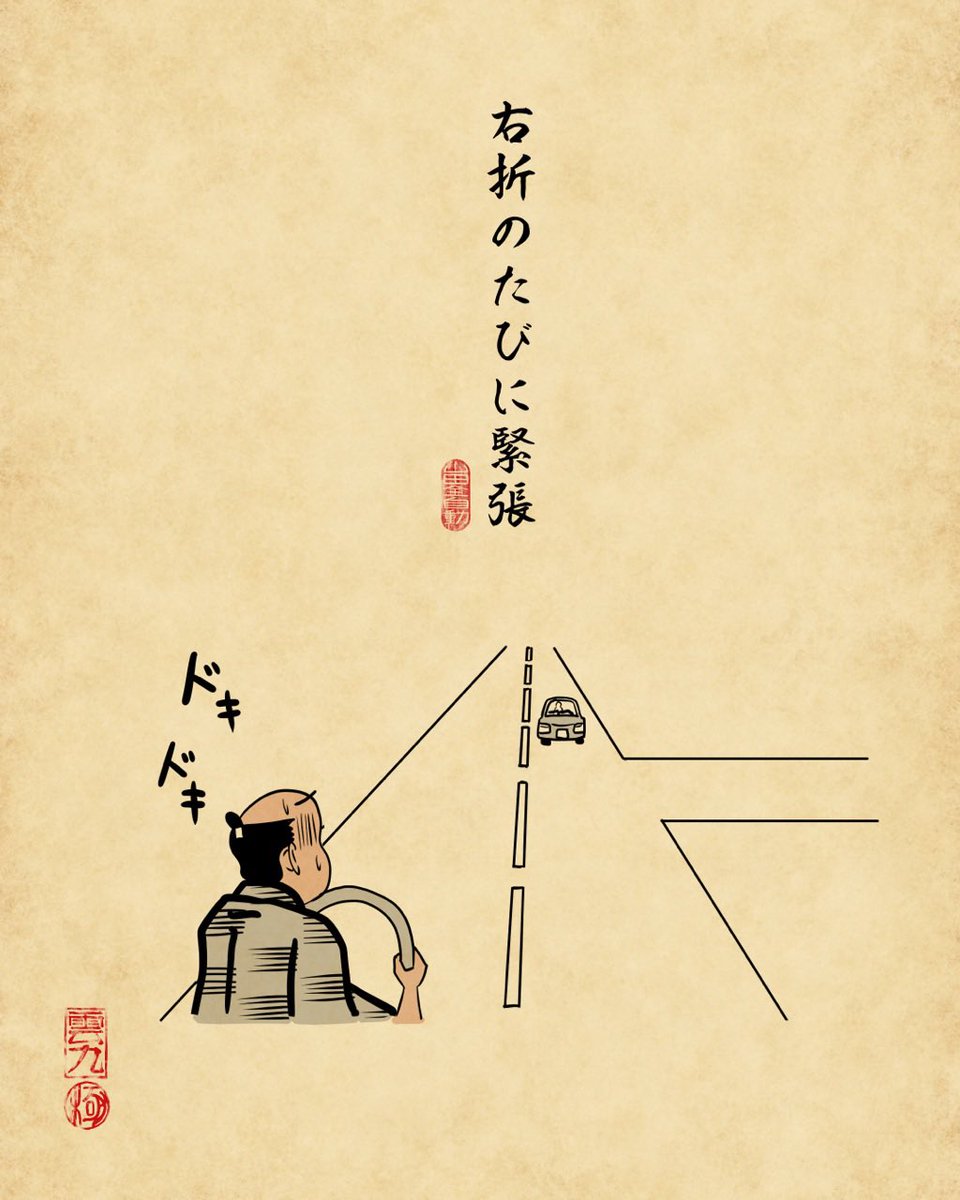 右折のたびに緊張
ドキ
ドキ
雲九
極